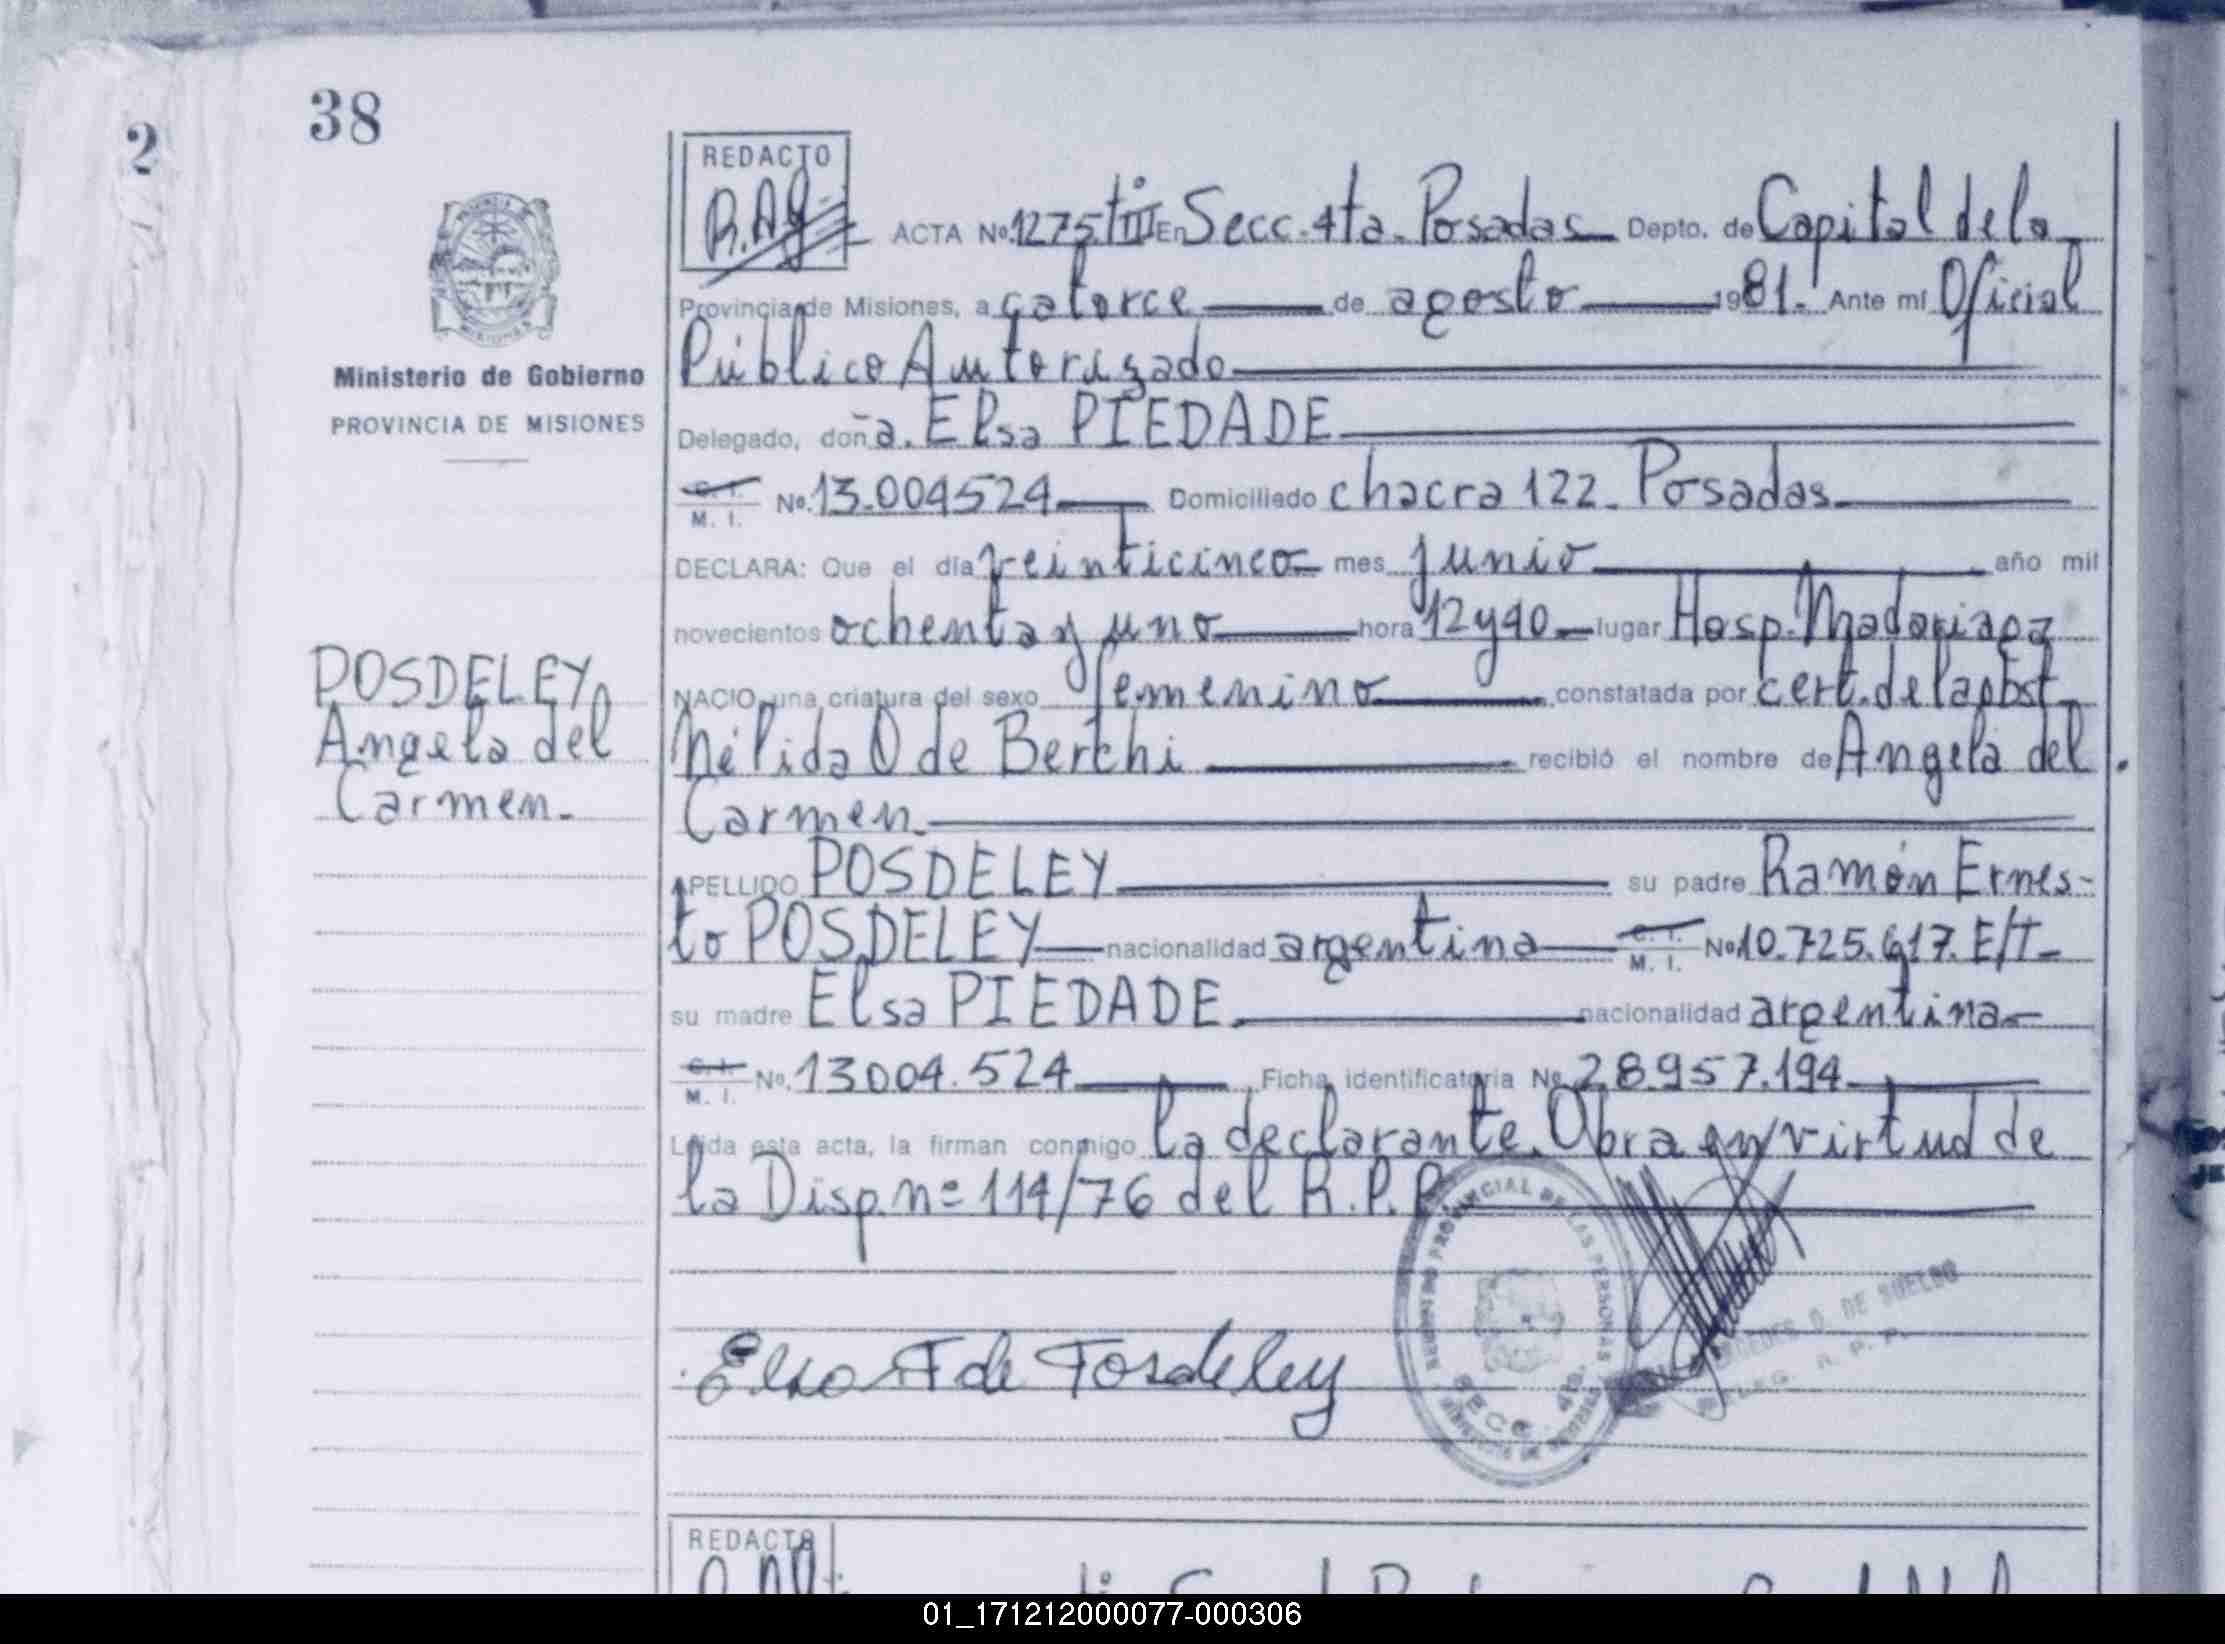 38
2
REDACTO
R.Ag.
ACTA Nº 1275 tº III En Secc. 4ta. Posadas Depto. de Capital de la
Provincia de Misiones, a catorce de agosto 1981. Ante mí Oficial
Público Autorizado
Ministerio de Gobierno
PROVINCIA DE MISIONES
Delegado, doña. Elsa PIEDADE
C. I. M. I. Nº. 13.004524 Domiciliado chacra 122. Posadas
DECLARA: Que el día veinticinco mes junio año mil
novecientos ochenta y uno hora 12 y 40 lugar Hosp. Madariaga
NACIO una criatura del sexo femenino constatada por cert. de la obst
POSDELEY
Angela del
Carmen.
Nélida O de Berchi recibió el nombre de Angela del
Carmen.
APELLIDO POSDELEY su padre Ramón Ernes-
to POSDELEY nacionalidad argentina C. I. M. I. Nº 10.725.617. E/T
su madre Elsa PIEDADE nacionalidad argentina
C. I. M. I. Nº. 13004.524 Ficha identificatoria Nº 28.957.194
Leída esta acta, la firman conmigo la declarante. Obra en virtud de
la Disp. nº 114/76 del R.P.P.
REGISTRO PROVINCIAL DE LAS PERSONAS
SECC. 4ta.
D. DE SUELDO
DELEG. R. P. P.
Elsa P de Posdeley
REDACTO
01_171212000077-000306